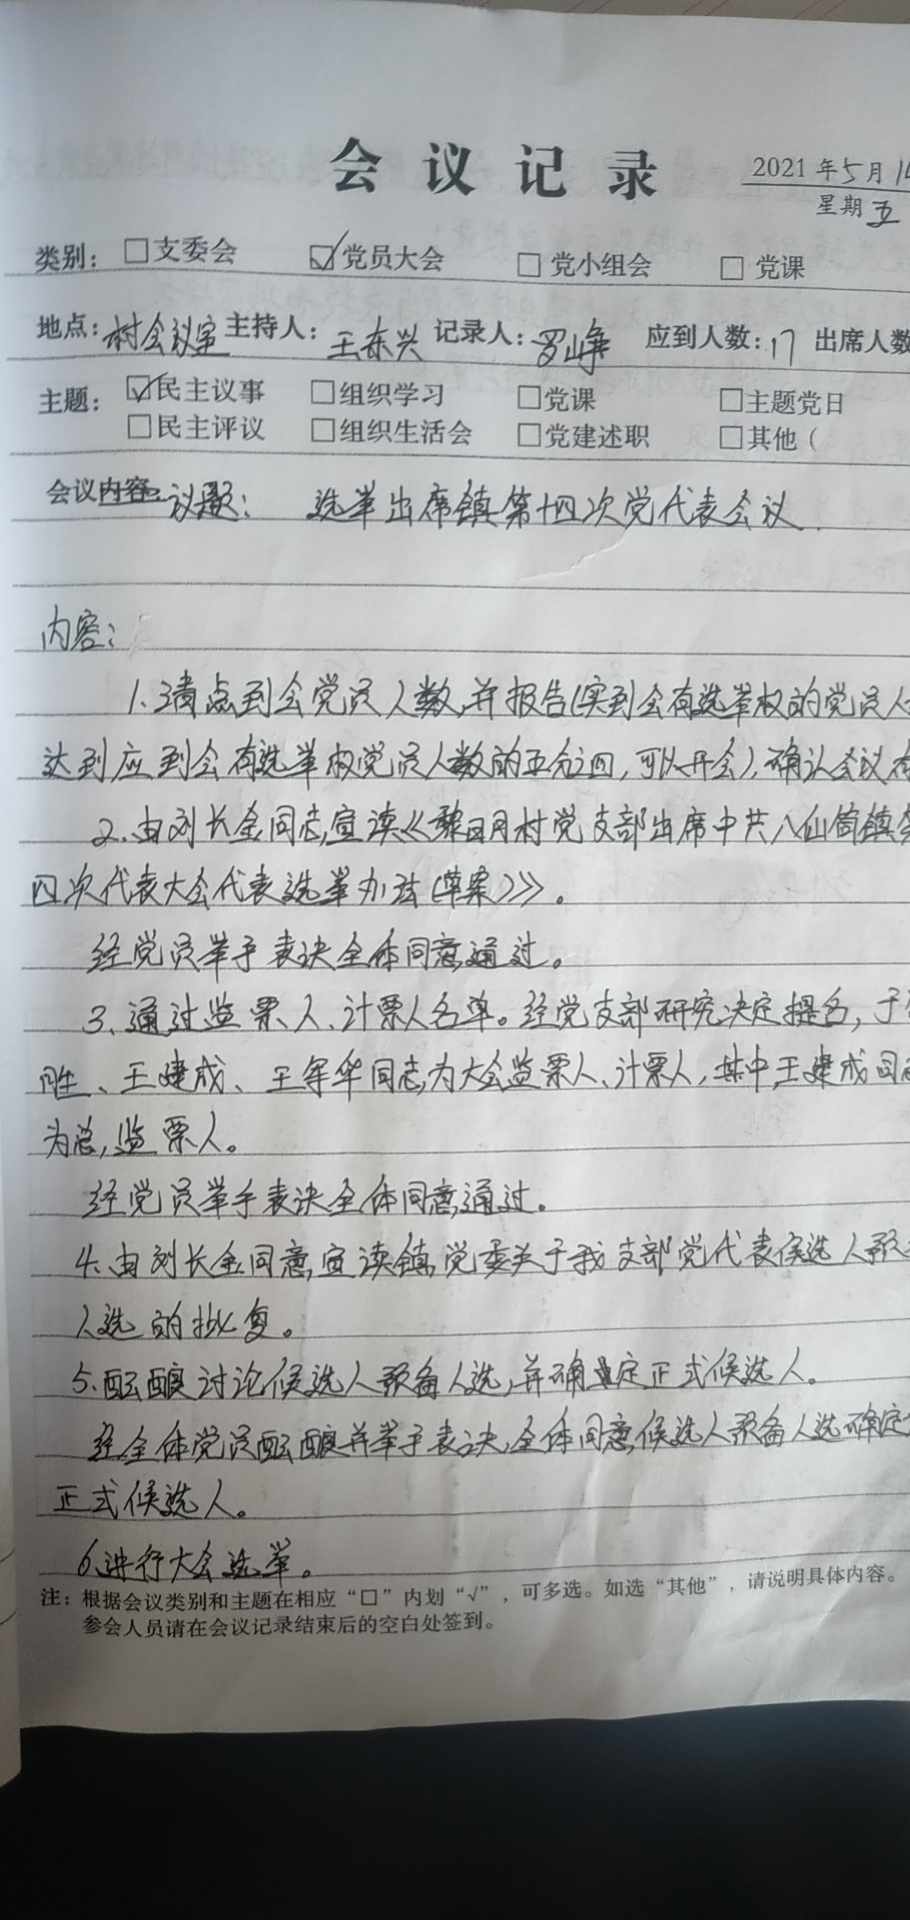 会议记录
2021年5月14
星期五
类别: □支委会 ☑党员大会 □党小组会 □党课
地点:村会议室 主持人:王东兴 记录人:罗峥 应到人数:17 出席人数
主题: ☑民主议事 □组织学习 □党课 □主题党日
□民主评议 □组织生活会 □党建述职 □其他(
会议内容: 议题: 选举出席镇第十四次党代表会议.
内容:
1.清点到会党员人数,并报告(实到会有选举权的党员人
达到应到会有选举权党员人数的五分之四,可以开会),确认会议有
2.由刘长金同志宣读《黎明村党支部出席中共八仙筒镇第
四次代表大会代表选举办法(草案)》。
经党员举手表决全体同意通过。
3、通过监票人、计票人名单。经党支部研究决定提名,于
胜、王建成、王军华同志为大会监票人、计票人,其中王建成同志
为总监票人。
经党员举手表决全体同意通过。
4.由刘长金同意宣读镇党委关于我支部党代表候选人预备
人选的批复。
5.酝酿讨论候选人预备人选,并确定正式候选人。
经全体党员酝酿并举手表决,全体同意候选人预备人选确定为
正式候选人。
6.进行大会选举。
注:根据会议类别和主题在相应“□”内划“√”,可多选。如选“其他”,请说明具体内容。
参会人员请在会议记录结束后的空白处签到。